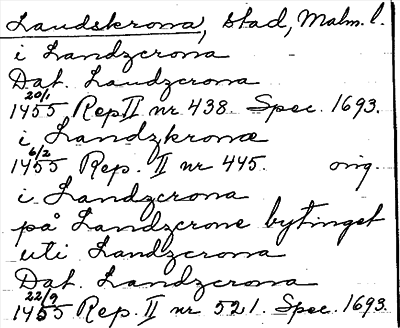 Landskrona, stad, Malm. l.
i Landzcrona
Dat. Landzcrona
20/1
1455 Rep II nr 438. Spec. 1693.
i Landzkronæ
6/2
1455 Rep. II nr 445. orig.
i Landzcrona
på Landzcrone bytinget
uti Landzcrona
Dat. Landzcrona
22/9
1455 Rep. II nr 521. Spec. 1693